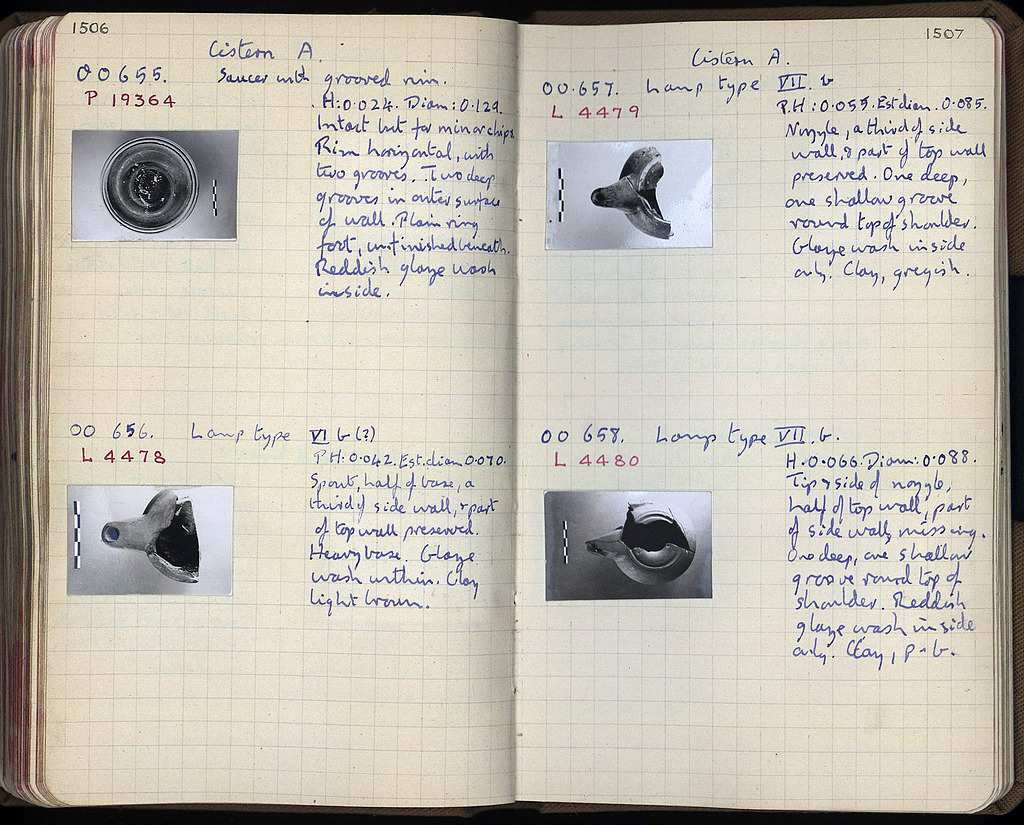 1506
Cistern A.
OO 655. Saucer with grooved rim.
P 19364
H: 0.024. Diam: 0.129.
Intact but for minor chips.
Rim horizontal, with
two grooves. Two deep
grooves in outer surface
of wall. Plain ring
foot, unfinished beneath.
Reddish glaze wash
inside.
OO 656. Lamp type VI b (?)
L 4478
P.H: 0.042. Est. diam 0.070.
Spout, half of base, a
third of side wall, & part
of top wall preserved.
Heavy base. Glaze
wash within. Clay
light brown.
1507
Cistern A.
OO 657. Lamp type VII. b
L 4479
P.H: 0.055. Est diam. 0.085.
Nozzle, a third of side
wall, & part of top wall
preserved. One deep,
one shallow groove
round top of shoulder.
Glaze wash inside
only. Clay, greyish.
OO 658. Lamp type VII. b.
L 4480
H. 0.066. Diam: 0.088.
Tip & side of nozzle,
half of top wall, part
of side wall missing.
One deep, one shallow
groove round top of
shoulder. Reddish
glaze wash inside
only. Clay, p-b.